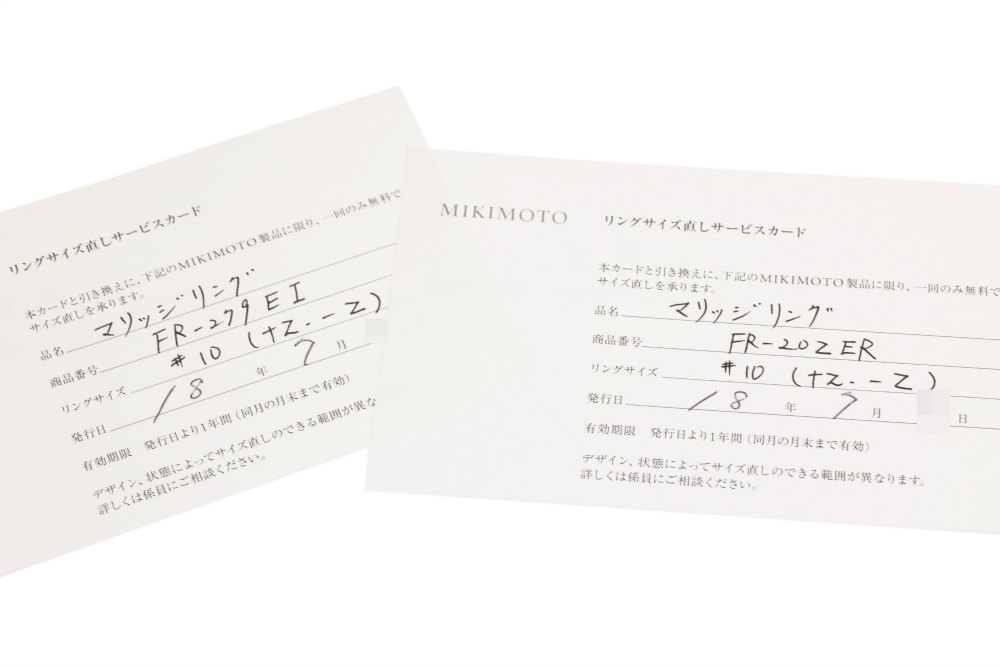 リングサイズ直しサービスカード
本カードと引き換えに、下記のMIKIMOTO製品に限り、一回のみ無料で
サイズ直しを承ります。
品名 マリッジリング
商品番号 FR-279EI
リングサイズ #10 (+2.-2)
発行日 '18 年 7 月
有効期限 発行日より1年間(同月の月末まで有効)
デザイン、状態によってサイズ直しのできる範囲が異な
詳しくは係員にご相談ください。
MIKIMOTO リングサイズ直しサービスカード
本カードと引き換えに、下記のMIKIMOTO製品に限り、一回のみ無料で
サイズ直しを承ります。
品名 マリッジリング
商品番号 FR-202ER
リングサイズ #10 (+2.-2)
発行日 '18 年 7 月 日
有効期限 発行日より1年間(同月の月末まで有効)
デザイン、状態によってサイズ直しのできる範囲が異なります。
詳しくは係員にご相談ください。